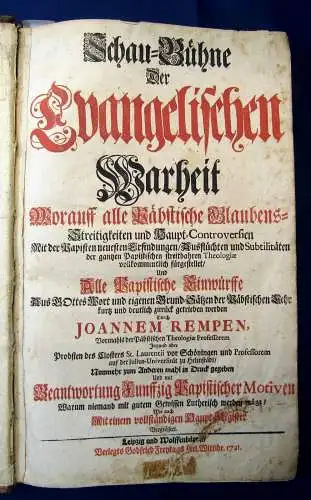 Schau-Bühne
Der
Evangelischen
Warheit
Worauff alle Päbstische Glaubens-
Streitigkeiten und Haupt-Controversien
Mit der Papisten neuesten Erfindungen/ Ausflüchten und Subtilitäten
der gantzen Papistischen streitbahren Theologiæ
vollkommentlich fürgestellet/
Und
Alle Papistische Einwürffe
Aus GOttes Wort und eigenen Grund-Sätzen der Päbstischen Lehr
kurtz und deutlich zurück getrieben werden
Durch
JOANNEM REMPEN,
Vormahls der Päbstischen Theologiæ Professorem
Jetzund aber
Probsten des Closters St. Laurentii vor Schöningen und Professorem
auf der Julius-Universität zu Helmstädt/
Nunmehr zum Anderen mahl in Druck gegeben
Und mit
Beantwortung Funffzig Papistischer Motiven
Warum niemand mit gutem Gewissen Lutherisch werden möge/
Wie auch
Mit einem vollständigen Haupt-Register
Vergrössert.
Leipzig und Wolffenbüttel/
Verlegts Godfried Freytags 1721.